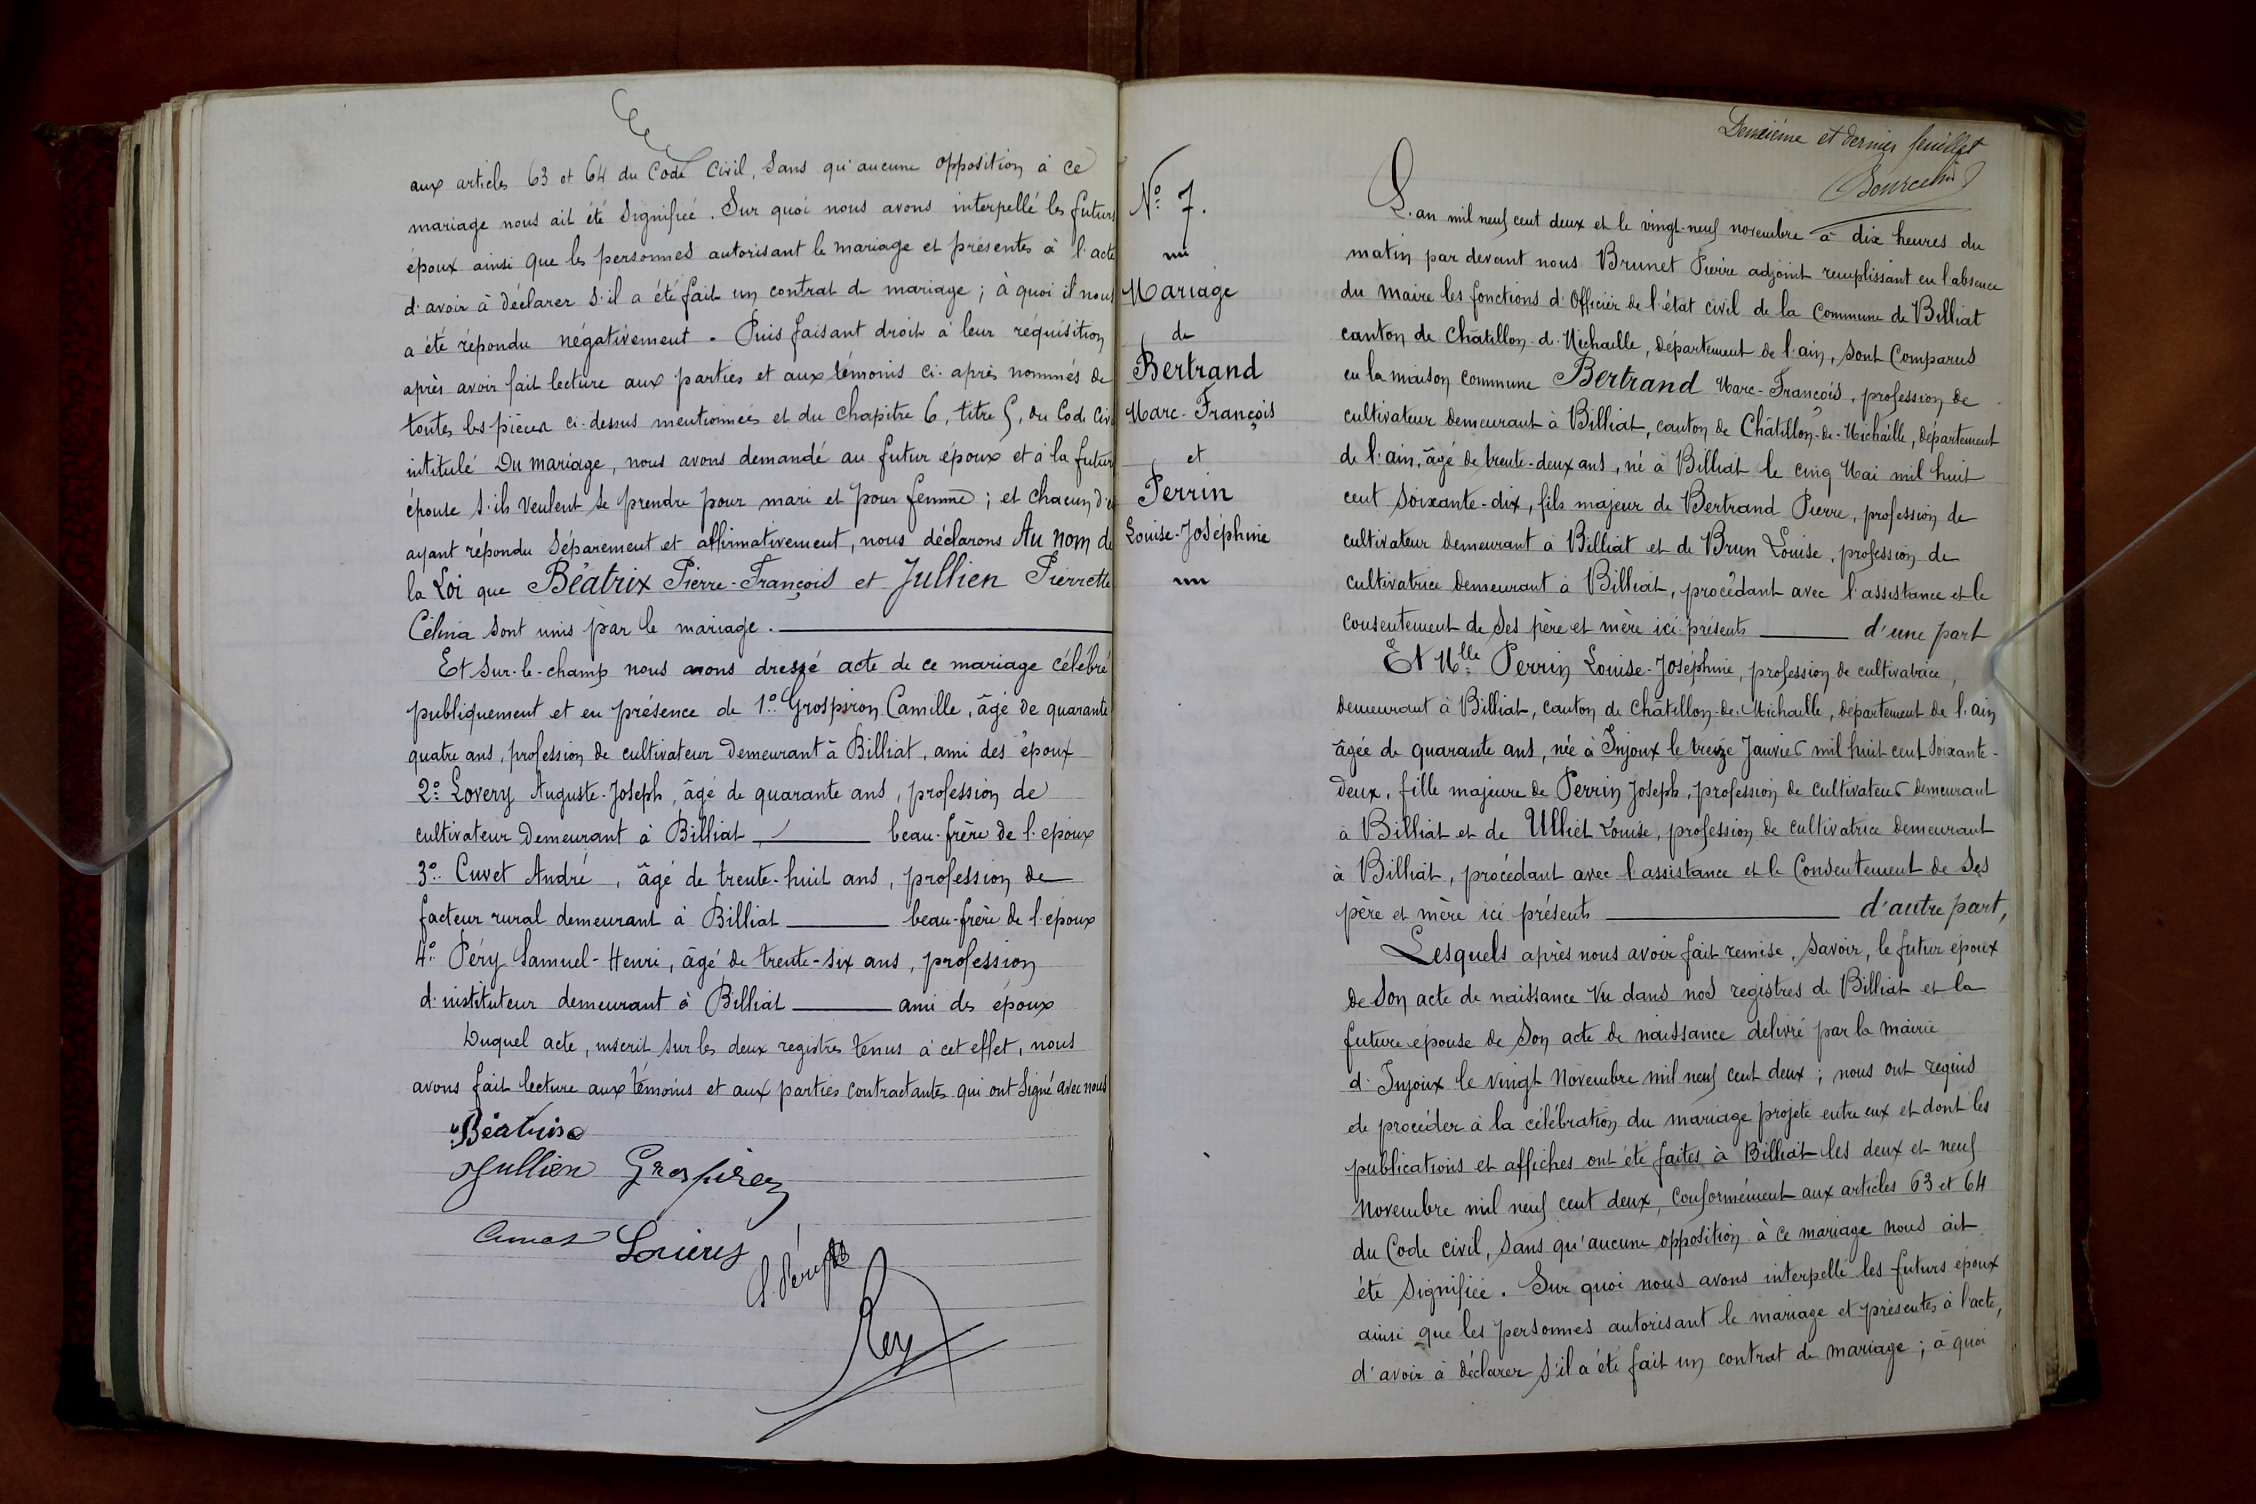 aux articles 63 et 64 du Code Civil, sans qu'aucune opposition à ce
mariage nous ait été signifiée. Sur quoi nous avons interpellé les futurs
époux ainsi que les personnes autorisant le mariage et présentes à l'acte
d'avoir à déclarer s'il a été fait un contrat de mariage ; à quoi il nous
a été répondu négativement. Puis faisant droit à leur réquisition
après avoir fait lecture aux parties et aux témoins ci-après nommés de
toutes les pièces ci-dessus mentionnées et du chapitre 6, titre 5, du Code Civ
intitulé Du mariage, nous avons demandé au futur époux et à la future
épouse s'ils veulent se prendre pour mari et pour femme ; et chacun d'e
ayant répondu séparement et affirmativement, nous déclarons Au nom de
la Loi que Béatrix Pierre-François et Jullien Pierrette
Célina sont unis par le mariage.
Et sur-le-champ nous avons dressé acte de ce mariage célébré
publiquement et en présence de 1º Grospiron Camille, âgé de quarante
quatre ans, profession de cultivateur demeurant à Billiat, ami des époux
2º Lovery Auguste-Joseph, âgé de quarante ans, profession de
cultivateur demeurant à Billiat, beau-frère de l'époux
3º Cuvet André, âgé de trente-huit ans, profession de
facteur rural demeurant à Billiat beau-frère de l'époux
4º Péry Samuel-Henri, âgé de trente-six ans, profession
d'instituteur demeurant à Billiat ami des époux
Duquel acte, inscrit sur les deux registres tenus à cet effet, nous
avons fait lecture aux témoins et aux parties contractantes qui ont signé avec nous
Béatrix
Jullien Grospiron
Cuvet Lovery
S. Péry
Rey
Nº 7.
Mariage
de
Bertrand
Marc-François
et
Perrin
Louise-Joséphine
Deuxième et dernier feuillet
L'an mil neuf cent deux et le vingt-neuf novembre à dix heures du
matin par devant nous Brunet Pierre adjoint remplissant en l'absence
du maire les fonctions d'Officier de l'état civil de la Commune de Billiat
canton de Châtillon-de-Michaille, département de l'ain, sont Comparus
en la maison commune Bertrand Marc-François, profession de
cultivateur demeurant à Billiat, canton de Châtillon-de-Michaille, département
de l'ain, âgé de trente-deux ans, né à Billiat le cinq Mai mil huit
cent soixante-dix, fils majeur de Bertrand Pierre, profession de
cultivateur demeurant à Billiat et de Brun Louise, profession de
cultivatrice demeurant à Billiat, procédant avec l'assistance et le
consentement de ses père et mère ici présents d'une part
Et Mlle Perrin Louise-Joséphine, profession de cultivatrice,
demeurant à Billiat, canton de Châtillon-de-Michaille, département de l'ain
âgée de quarante ans, née à Injoux le treize Janvier mil huit cent soixante-
deux, fille majeure de Perrin Joseph, profession de cultivateur demeurant
à Billiat et de Ulliet Louise, profession de cultivatrice demeurant
à Billiat, procédant avec l'assistance et le Consentement de ses
père et mère ici présents d'autre part,
Lesquels après nous avoir fait remise, savoir, le futur époux
de son acte de naissance vu dans nos registres de Billiat et la
future épouse de son acte de naissance délivré par la mairie
d'Injoux le vingt Novembre mil neuf cent deux ; nous ont requis
de procéder à la célébration du mariage projeté entre eux et dont les
publications et affiches ont été faites à Billiat les deux et neuf
Novembre mil neuf cent deux, conformément aux articles 63 et 64
du Code civil, sans qu'aucune opposition à ce mariage nous ait
été signifiée. Sur quoi nous avons interpellé les futurs époux
ainsi que les personnes autorisant le mariage et présentes à l'acte,
d'avoir à déclarer s'il a été fait un contrat de mariage ; à quoi